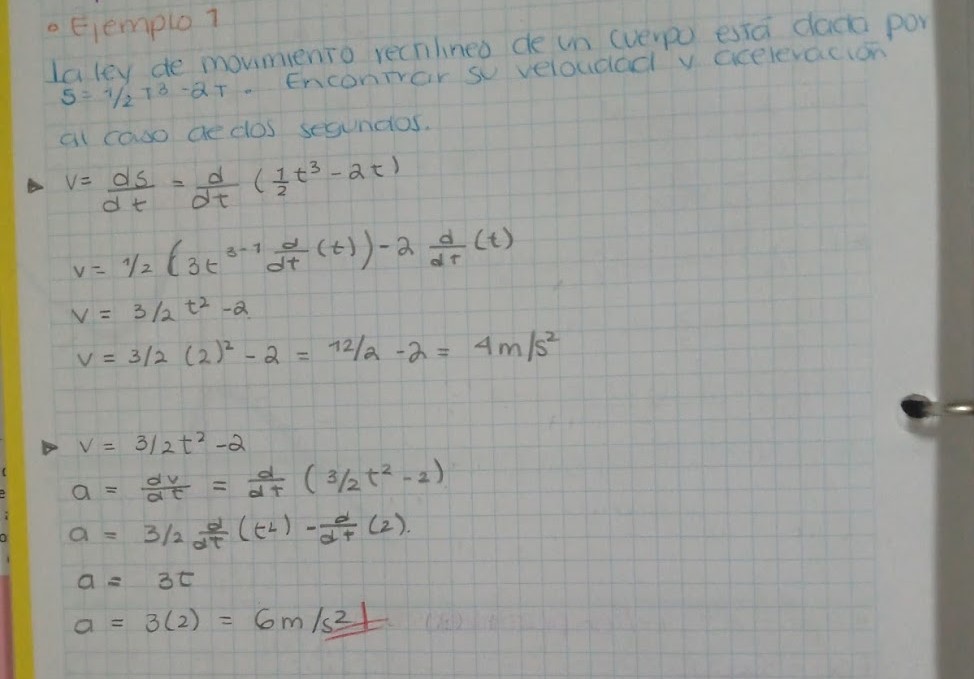 • Ejemplo 1
La ley de movimiento rectilineo de un cuerpo está dada por
S = 1/2 T³ - 2T. Encontrar su velocidad y aceleración
al cabo de dos segundos.
▶ v = ds/dt = d/dt (1/2 t³ - 2t)
v = 1/2 (3t³⁻¹ d/dt (t)) - 2 d/dt (t)
v = 3/2 t² - 2
v = 3/2 (2)² - 2 = 12/2 - 2 = 4m/s²
▶ v = 3/2 t² - 2
a = dv/dt = d/dt (3/2 t² - 2)
a = 3/2 d/dt (t²) - d/dt (2).
a = 3t
a = 3(2) = 6m/s²